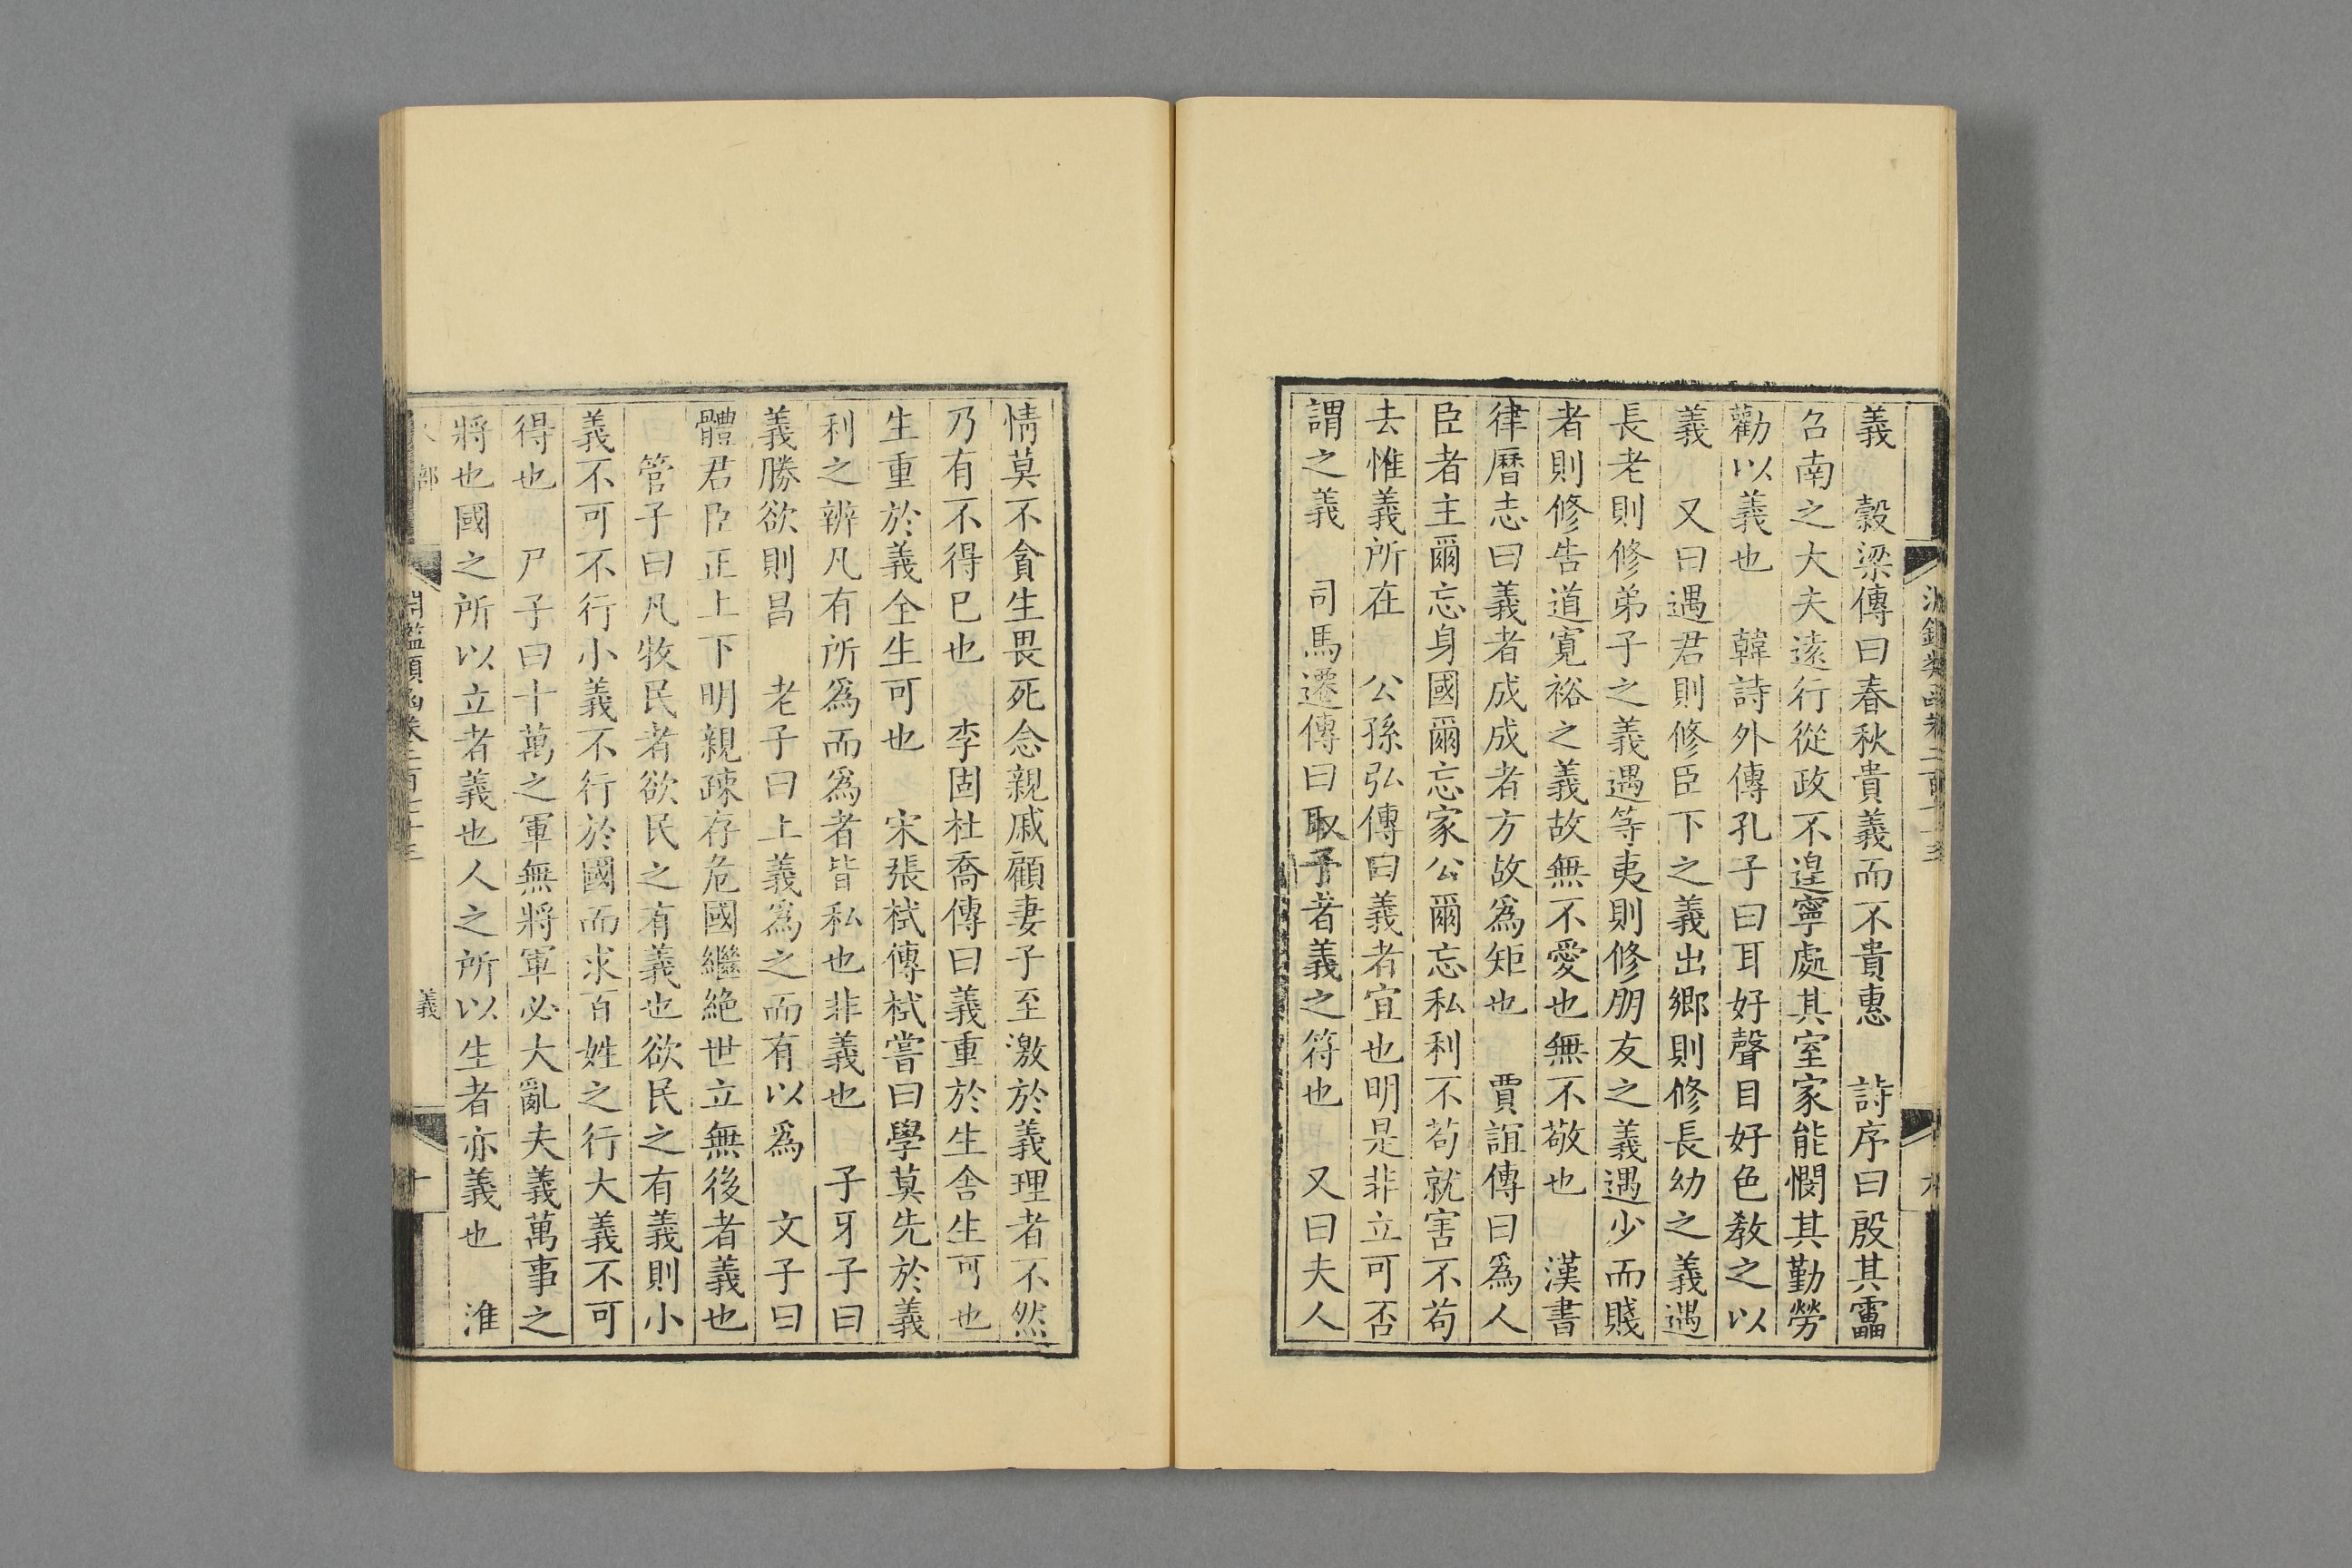 義 穀梁傳曰春秋貴義而不貴惠 詩序曰殷其靁
召南之大夫遠行從政不遑寧處其室家能憫其勤勞
勸以義也 韓詩外傳孔子曰耳好聲目好色教之以
義 又曰遇君則修臣下之義出鄉則修長幼之義遇
長老則修弟子之義遇等夷則修朋友之義遇少而賤
者則修告道寬裕之義故無不愛也無不敬也 漢書
律曆志曰義者成成者方故為矩也 賈誼傳曰為人
臣者主爾忘身國爾忘家公爾忘私利不苟就害不苟
去惟義所在 公孫弘傳曰義者宜也明是非立可否
謂之義 司馬遷傳曰取予者義之符也 又曰夫人
情莫不貪生畏死念親戚顧妻子至激於義理者不然
乃有不得已也 李固杜喬傳曰義重於生舍生可也
生重於義全生可也 宋張栻傳栻嘗曰學莫先於義
利之辨凡有所為而為者皆私也非義也 子牙子曰
義勝欲則昌 老子曰上義為之而有以為 文子曰
體君臣正上下明親疎存危國繼絕世立無後者義也
管子曰凡牧民者欲民之有義也欲民之有義則小
義不可不行小義不行於國而求百姓之行大義不可
得也 尸子曰十萬之軍無將軍必大亂夫義萬事之
將也國之所以立者義也人之所以生者亦義也 淮
部 義